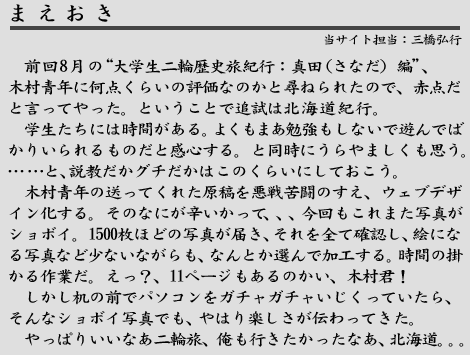 まえおき
当サイト担当：三橋弘行
　前回8月の“大学生二輪歴史旅紀行：真田（さなだ） 編”、
木村青年に何点くらいの評価なのかと尋ねられたので、赤点だ
と言ってやった。ということで追試は北海道紀行。
　学生たちには時間がある。よくもまあ勉強もしないで遊んでば
かりいられるものだと感心する。と同時にうらやましくも思う。
……と、説教だかグチだかはこのくらいにしておこう。
　木村青年の送ってくれた原稿を悪戦苦闘のすえ、ウェブデザ
イン化する。そのなにが辛いかって、、、今回もこれまた写真が
ショボイ。1500枚ほどの写真が届き、それを全て確認し、絵にな
る写真など少ないながらも、なんとか選んで加工する。時間の掛
かる作業だ。えっ？、11ページもあるのかい、木村君！
　しかし机の前でパソコンをガチャガチャいじくっていたら、
そんなショボイ写真でも、やはり楽しさが伝わってきた。
　やっぱりいいなあ二輪旅、俺も行きたかったなあ、北海道。。。